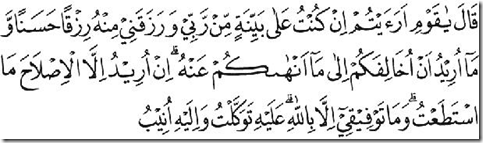 قَالَ يٰقَوْمِ اَرَءَيْتُمْ اِنْ كُنْتُ عَلٰى بَيِّنَةٍ مِّنْ رَّبِّيْ وَرَزَقَنِيْ مِنْهُ رِزْقًا حَسَنًا وَّ
مَآ اُرِيْدُ اَنْ اُخَالِفَكُمْ اِلٰى مَآ اَنْهٰىكُمْ عَنْهُ ۗ اِنْ اُرِيْدُ اِلَّا الْاِصْلَاحَ مَا
اسْتَطَعْتُ ۗ وَمَا تَوْفِيْقِيْٓ اِلَّا بِاللّٰهِ ۗ عَلَيْهِ تَوَكَّلْتُ وَاِلَيْهِ اُنِيْبُ